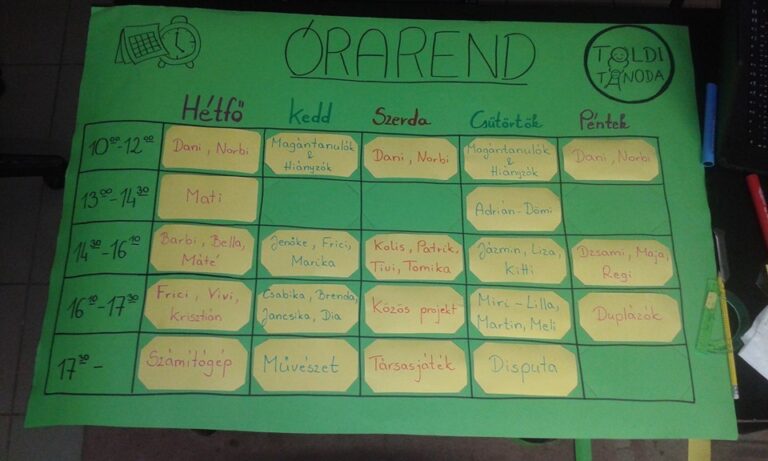 ÓRAREND
TOLDI
TANODA
Hétfő Kedd Szerda Csütörtök Péntek
10⁰⁰-12⁰⁰
Dani, Norbi
Magántanulók
&
Hiányzók
Dani, Norbi
Magántanulók
&
Hiányzók
Dani, Norbi
13⁰⁰-14³⁰
Mati
Adrián-Dömi
14³⁰-16¹⁰
Barbi, Bella,
Máté
Jenőke, Frici,
Marika
Kolis, Patrik,
Tivi, Tomika
Jázmin, Liza,
Kitti
Dzsami, Maja,
Regi
16¹⁰-17³⁰
Frici, Vivi,
Krisztián
Csabika, Brenda,
Jancsika, Dia
Közös projekt
Miri-Lilla,
Martin, Meli
Duplázók
17³⁰-
Számítógép
Művészet
Társasjáték
Disputa